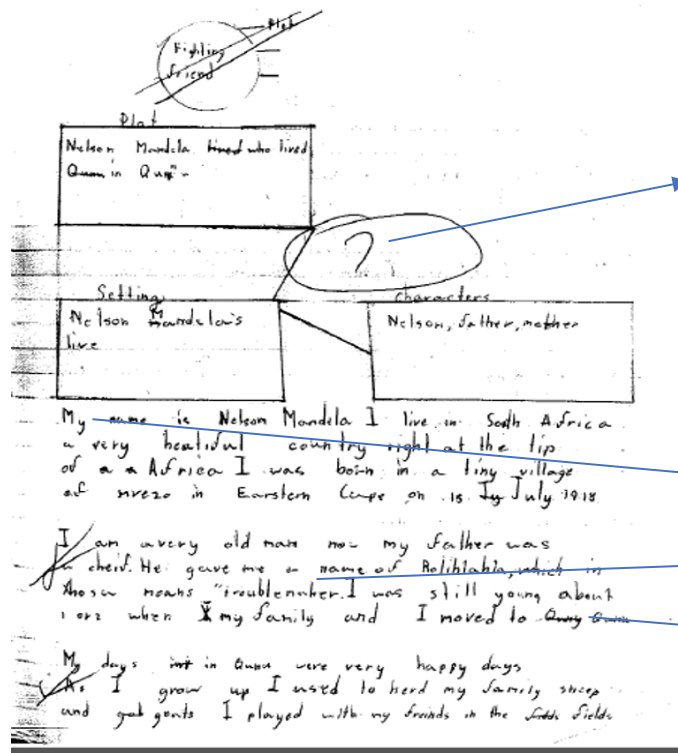 Plot
Fighting
friend
Plot
Nelson Mandela lived who lived
Qunu in Qunu
?
Setting
Characters
Nelson Mandela's
live
Nelson, father, mother
My name is Nelson Mandela I live in South Africa
a very beatiful country right at the tip
of a a Africa I was born in a tiny village
of mvezo in Earstern Cape on 18 July 1918
I am avery old man now my father was
a cheif. He gave me a name of Rolihlahla, which in
Xhosa means "troublemaker. I was still young about
1 or 2 when my family and I moved to Qunu
My days in Qunu were very happy days
As I grow up I used to herd my family sheep
and goats I played with my freinds in the fields